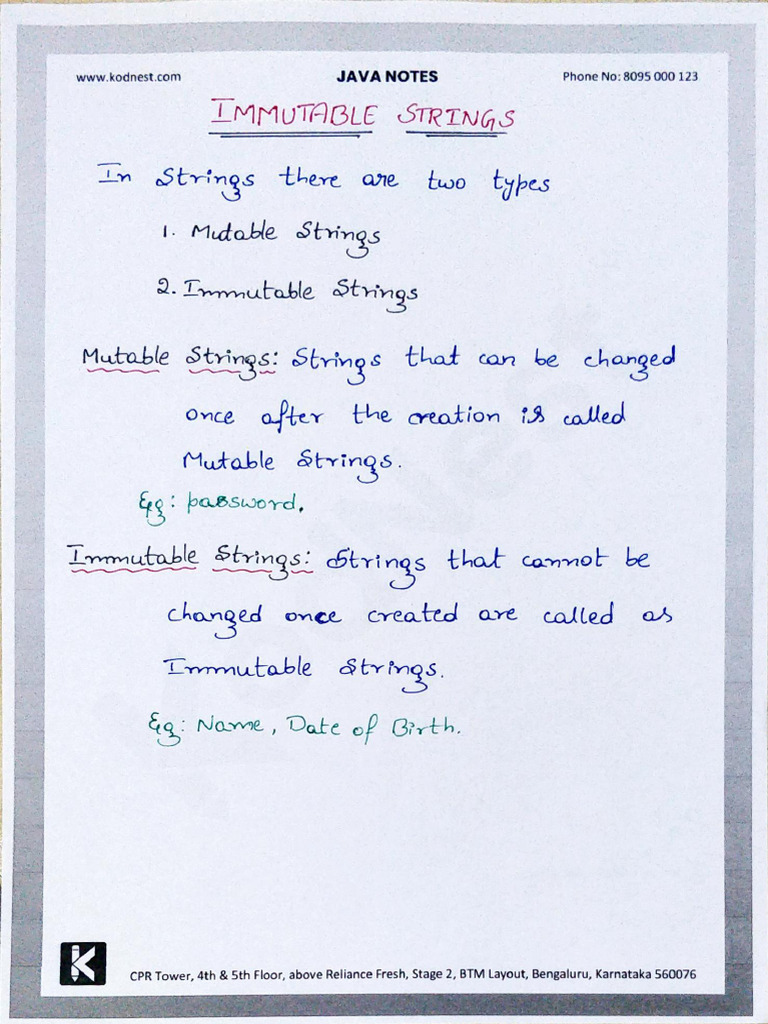 www.kodnest.com JAVA NOTES Phone No: 8095 000 123
IMMUTABLE STRINGS
In Strings there are two types
1. Mutable Strings
2. Immutable Strings
Mutable Strings: Strings that can be changed
once after the creation is called
Mutable Strings.
Eg: password.
Immutable Strings: Strings that cannot be
changed once created are called as
Immutable Strings.
Eg: Name, Date of Birth.
K
CPR Tower, 4th & 5th Floor, above Reliance Fresh, Stage 2, BTM Layout, Bengaluru, Karnataka 560076